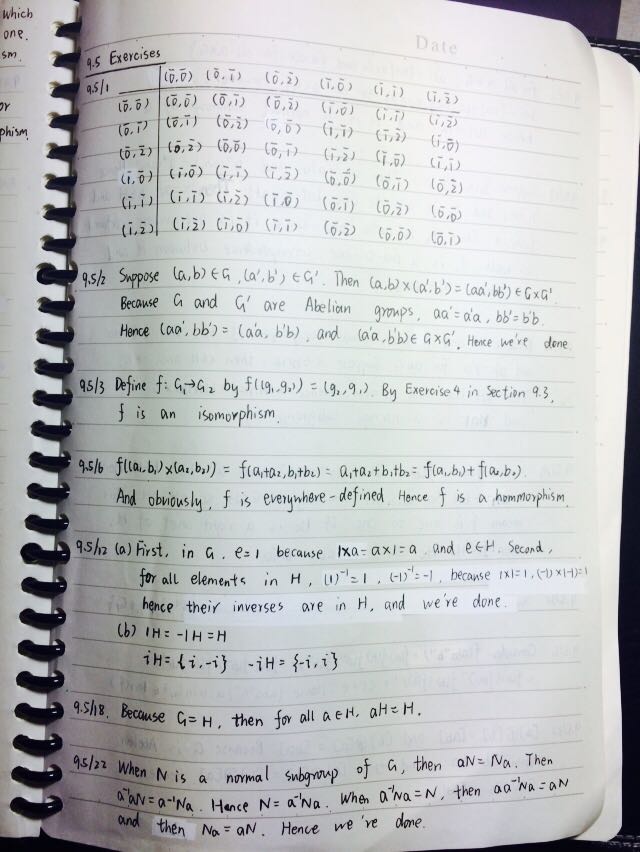 which
one.
sm.
or
phism
Date
9.5 Exercises
9.5/1 (0̄,0̄) (0̄,1̄) (0̄,2̄) (1̄,0̄) (1̄,1̄) (1̄,2̄)
(0̄,0̄) (0̄,0̄) (0̄,1̄) (0̄,2̄) (1̄,0̄) (1̄,1̄) (1̄,2̄)
(0̄,1̄) (0̄,1̄) (0̄,2̄) (0̄,0̄) (1̄,1̄) (1̄,2̄) (1̄,0̄)
(0̄,2̄) (0̄,2̄) (0̄,0̄) (0̄,1̄) (1̄,2̄) (1̄,0̄) (1̄,1̄)
(1̄,0̄) (1̄,0̄) (1̄,1̄) (1̄,2̄) (0̄,0̄) (0̄,1̄) (0̄,2̄)
(1̄,1̄) (1̄,1̄) (1̄,2̄) (1̄,0̄) (0̄,1̄) (0̄,2̄) (0̄,0̄)
(1̄,2̄) (1̄,2̄) (1̄,0̄) (1̄,1̄) (0̄,2̄) (0̄,0̄) (0̄,1̄)
9.5/2 Suppose (a,b)∈G, (a',b')∈G'. Then (a,b)×(a',b')=(aa',bb')∈G×G'.
Because G and G' are Abelian groups, aa'=a'a, bb'=b'b.
Hence (aa',bb')=(a'a, b'b), and (a'a,b'b)∈G×G'. Hence we're done.
9.5/3 Define f: G₁→G₂ by f((g₁,g₂)) = (g₂,g₁). By Exercise 4 in Section 9.3,
f is an isomorphism.
9.5/6 f((a₁,b₁)×(a₂,b₂)) = f(a₁+a₂,b₁+b₂) = a₁+a₂+b₁+b₂ = f(a₁,b₁)+f(a₂,b₂).
And obviously, f is everywhere-defined. Hence f is a hommorphism.
9.5/12 (a) First, in G, e=1 because 1×a=a×1=a. and e∈H. Second,
for all elements in H, (1)⁻¹=1, (-1)⁻¹=-1, because 1×1=1, (-1)×(-1)=1
hence their inverses are in H, and we're done.
(b) 1H = -1H = H
iH = {i,-i} -iH = {-i,i}
9.5/18. Because G=H, then for all a∈H, aH=H.
9.5/22 When N is a normal subgroup of G, then aN=Na. Then
a⁻¹aN=a⁻¹Na. Hence N=a⁻¹Na. When a⁻¹Na=N, then aa⁻¹Na=aN
and then Na=aN. Hence we're done.